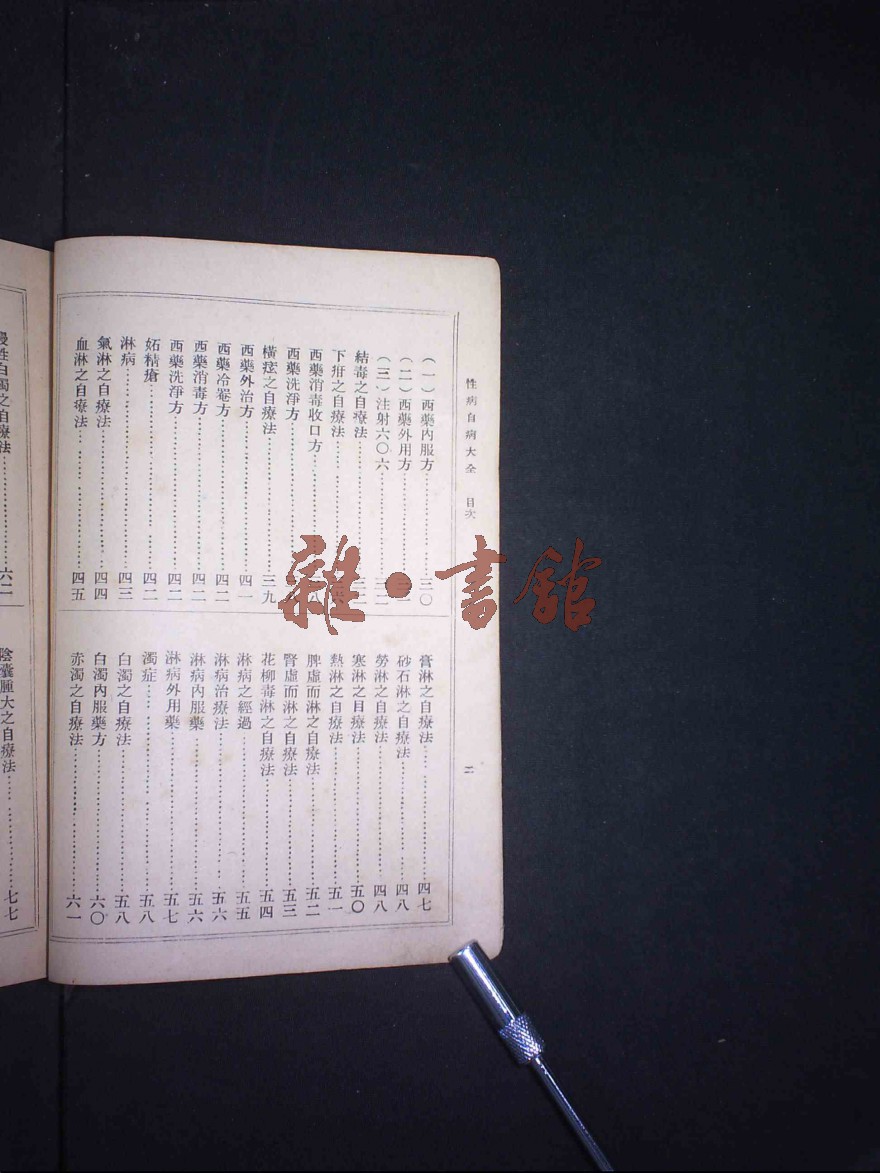 性病自病大全　目次
二
（一）西藥內服方……三〇
（二）西藥外用方
（三）注射六〇六
結毒之自療法
下疳之自療法
西藥消毒收口方
西藥洗淨方
橫痃之自療法……三九
西藥外治方……四一
西藥冷罨方……四二
西藥消毒方……四二
西藥洗淨方……四二
妬精瘡……四二
淋病……四三
氣淋之自療法……四四
血淋之自療法……四五
膏淋之自療法……四七
砂石淋之自療法……四八
勞淋之自療法……四八
寒淋之目療法……五〇
熱淋之自療法……五一
脾虛而淋之自療法……五二
腎虛而淋之自療法……五三
花柳毒淋之自療法……五四
淋病之經過……五五
淋病治療法……五六
淋病內服藥……五六
淋病外用藥……五七
濁症……五八
白濁之自療法……五八
白濁內服藥方……六〇
赤濁之自療法……六一
慢性白濁之自療法……六二
陰囊腫大之自療法……七七
雜·書館